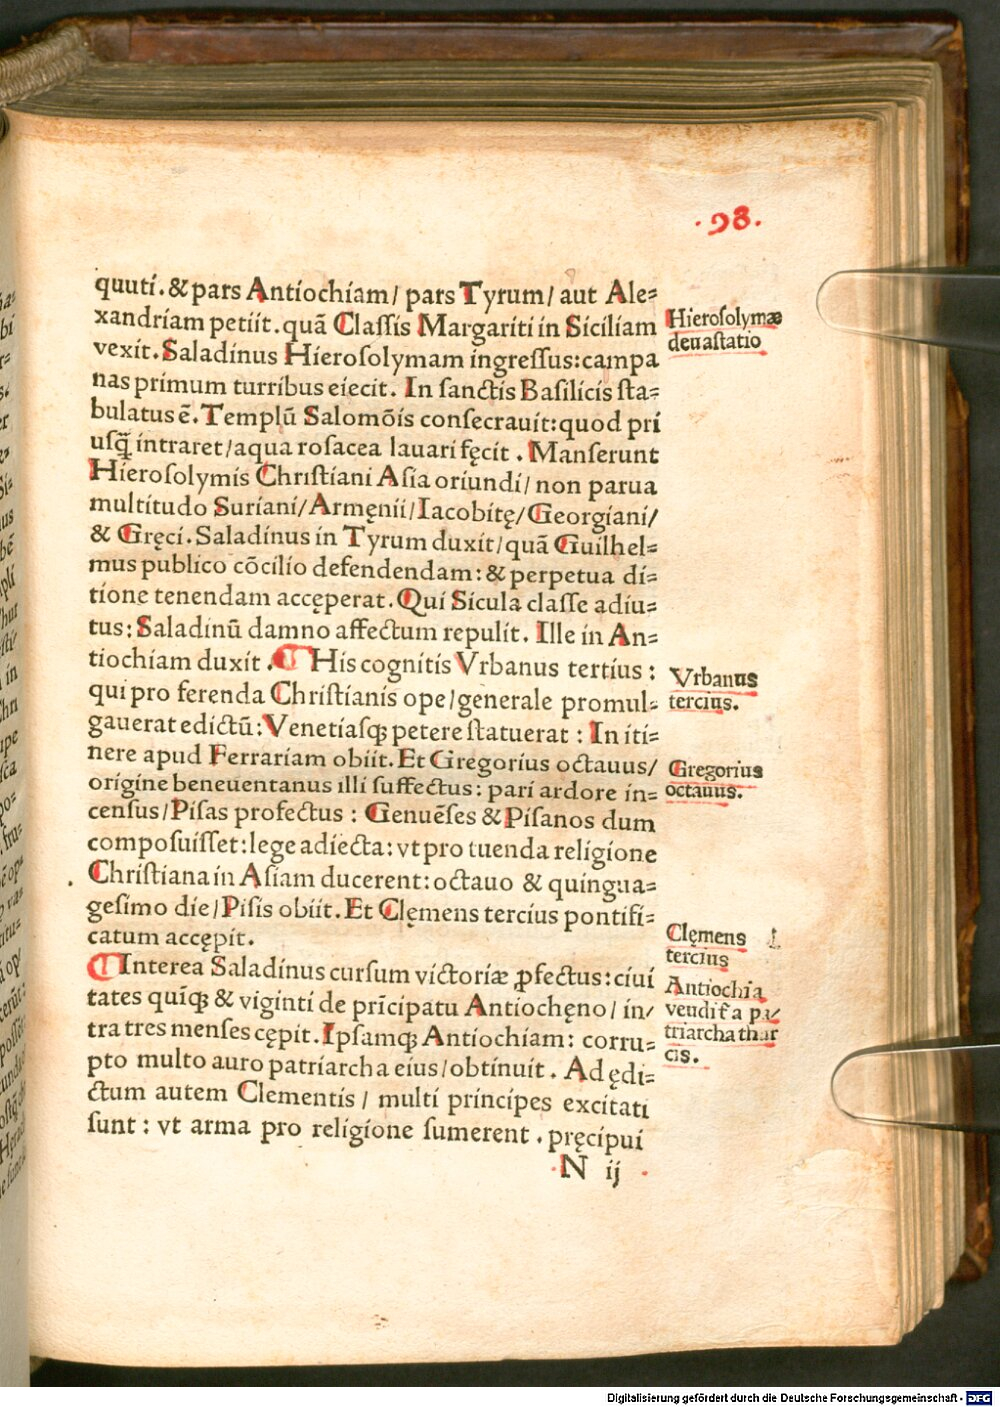 ·98·
quuti. & pars Antiochiam/ pars Tyrum/ aut Ale=
xandriam petiit. quā Classis Margariti in Siciliam
vexit. Saladinus Hierosolymam ingressus: campa
nas primum turribus eiecit. In sanctis Basilicis sta=
bulatus ē. Templū Salomōis consecrauit: quod pri
usq̄ intraret/ aqua rosacea lauari fęcit. Manserunt
Hierosolymis Christiani Asia oriundi/ non parua
multitudo Suriani/ Armęnii/ Iacobitę/ Georgiani/
& Gręci. Saladinus in Tyrum duxit/ quā Guilhel=
mus publico cōcilio defendendam: & perpetua di=
tione tenendam accęperat. Qui Sicula classe adiu=
tus: Saladinū damno affectum repulit. Ille in An=
tiochiam duxit. ¶ His cognitis Vrbanus tertius:
qui pro ferenda Christianis ope/ generale promul=
gauerat edictū: Venetiasq; petere statuerat: In iti=
nere apud Ferrariam obiit. Et Gregorius octauus/
origine beneuentanus illi suffectus: pari ardore in=
census/ Pisas profectus: Genuēses & Pisanos dum
composuisset: lege adiecta: vt pro tuenda religione
Christiana in Asiam ducerent: octauo & quingua=
gesimo die/ Pisis obiit. Et Clęmens tercius pontifi=
catum accępit.
¶ Interea Saladinus cursum victoriæ ꝓfectus: ciui
tates quīq; & viginti de prīcipatu Antiochęno/ in/
tra tres menses cępit. Ipsamq; Antiochiam: corru=
pto multo auro patriarcha eius/ obtinuit. Ad ędi=
ctum autem Clementis/ multi principes excitati
sunt: vt arma pro religione sumerent. pręcipui
N ij
Hierosolymæ
deuastatio
Vrbanus
tercius.
Gregorius
octauus.
Clęmens
tercius
Antiochia
vendita pa/
triarcha thur
cis.
Digitalisierung gefördert durch die Deutsche Forschungsgemeinschaft - DFG